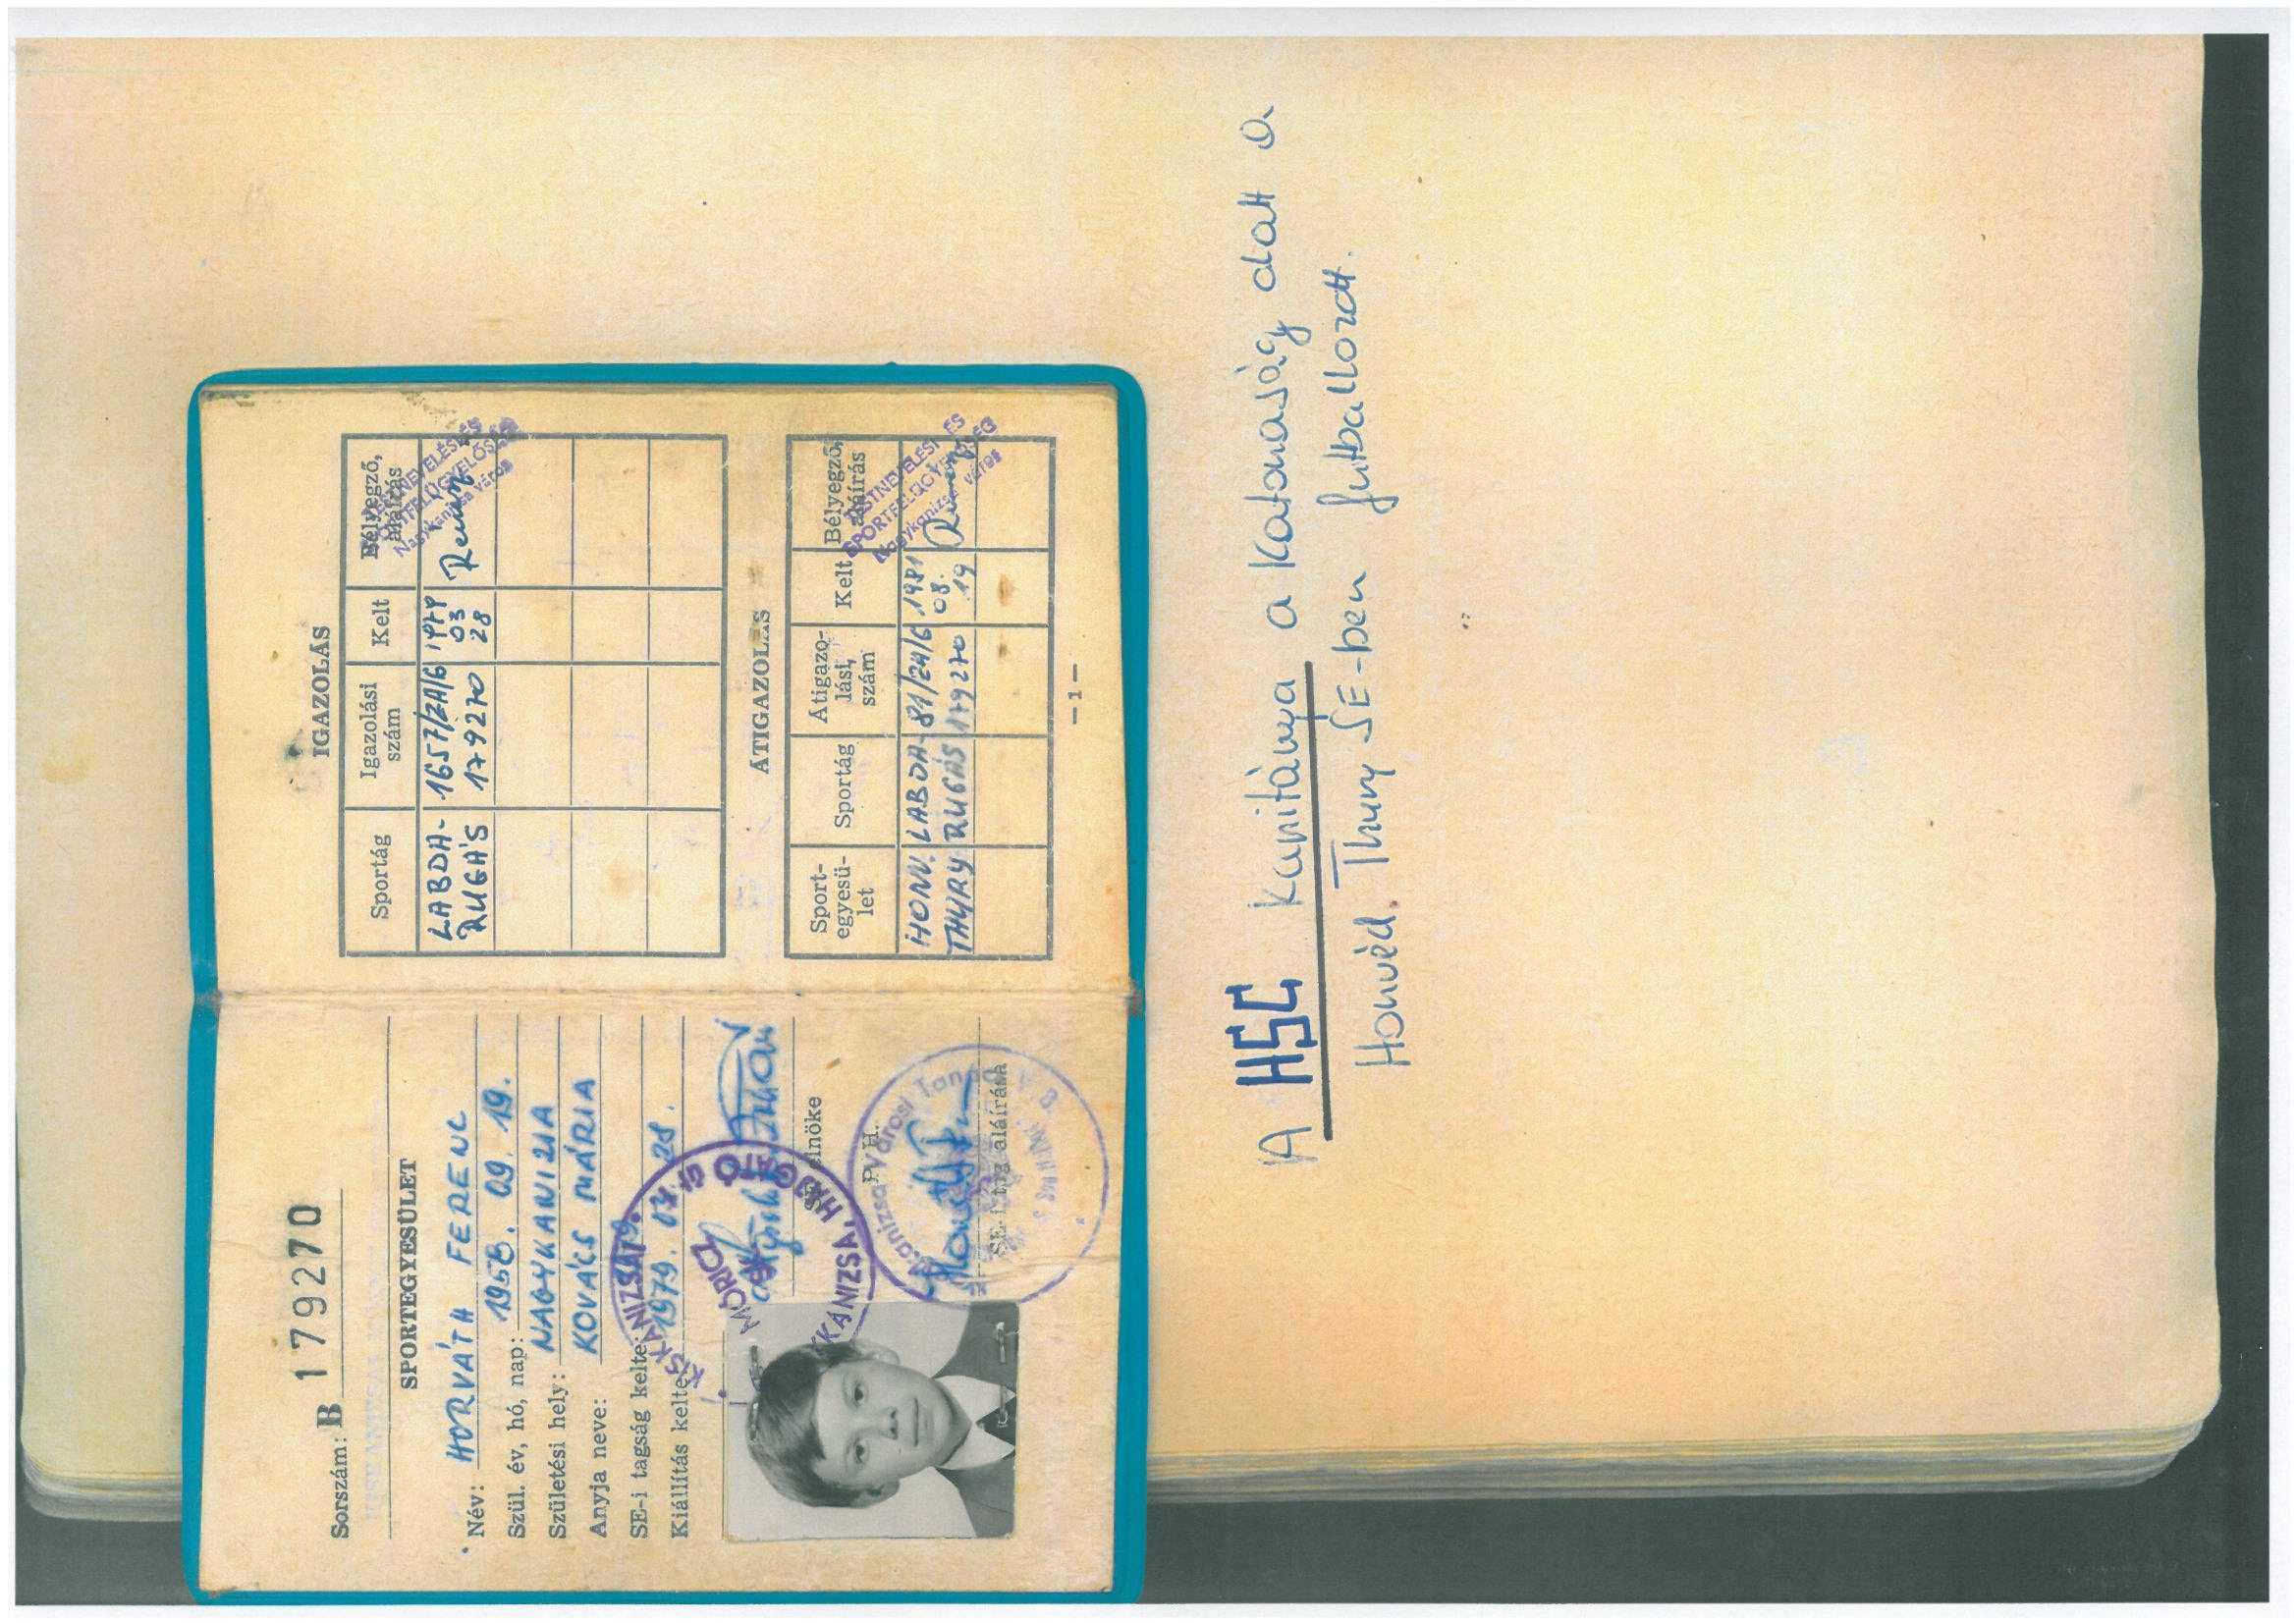 Sorszám: B 179270
SPORTEGYESÜLET
Név: HORVÁTH FERENC
Szül. év, hó, nap: 1958. 09. 19.
Születési hely: NAGYKANIZSA
Anyja neve: KOVÁCS MÁRIA
SE-i tagság kelte:
Kiállítás kelte: 1979. 03. 28.
SE elnöke
P. H.
SE-i tag aláírása
IGAZOLÁS
Sportág Igazolási szám Kelt Bélyegző, aláírás
LABDA- 1657/2A/6
RUGÁS 179270 03 28
TESTNEVELÉSI ÉS
SPORTFELÜGYELŐSÉG
Nagykanizsa város
ÁTIGAZOLÁS
Sport-egyesü-let Sportág Átigazo-lási, szám Kelt Bélyegző, aláírás
HONV. LABDA- 81/24/6 1981
THURY RUGÁS 179270 08. 19
TESTNEVELÉSI ÉS
SPORTFELÜGYELŐSÉG
Nagykanizsa város
— 1 —
A HSC kapitánya a katonaság alatt a
Honvéd. Thury SE-ben futballozott.